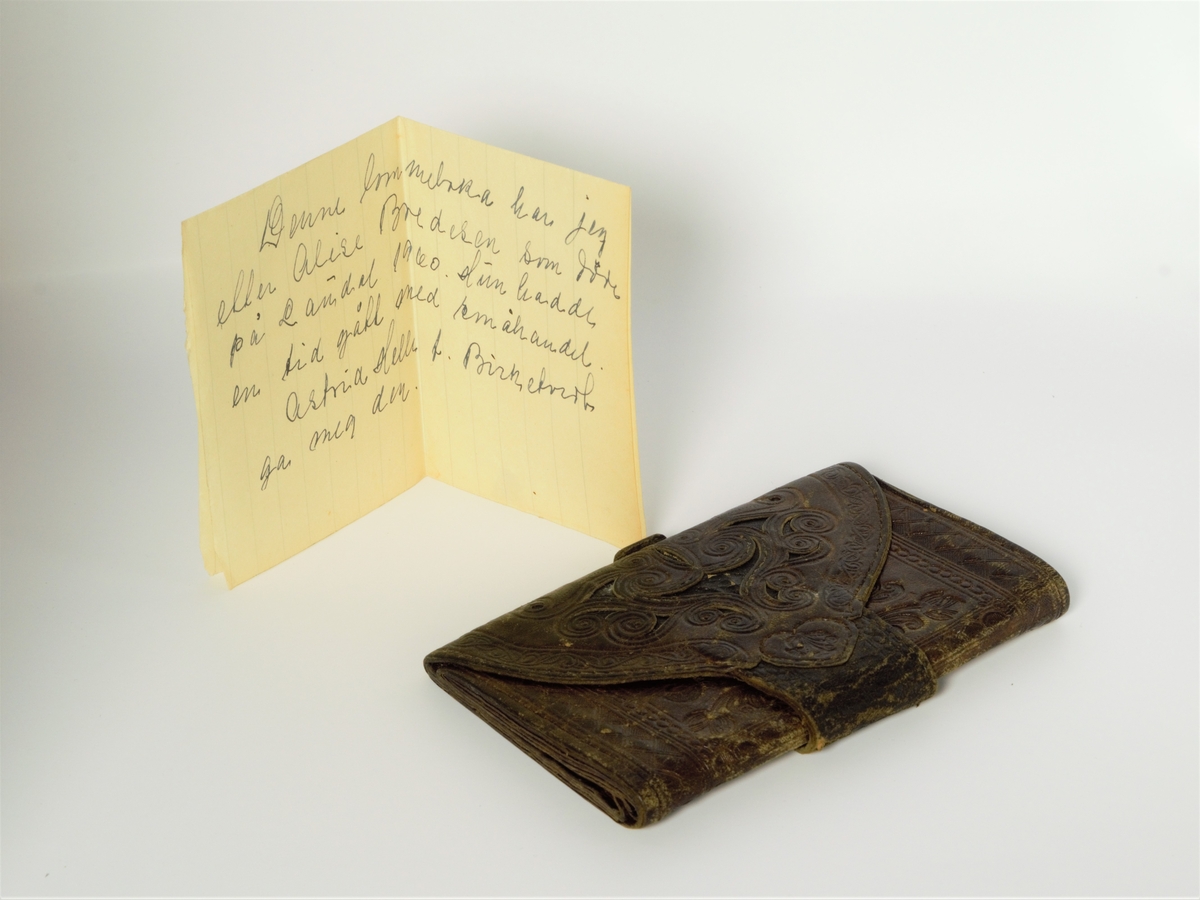 Denne lommeboka har jeg
etter Alise Bredesen som döde
på Laudal 1960. Hun hadde
en tid gått med småhandel.
Astrid Helle f. Birkeland
ga meg den.